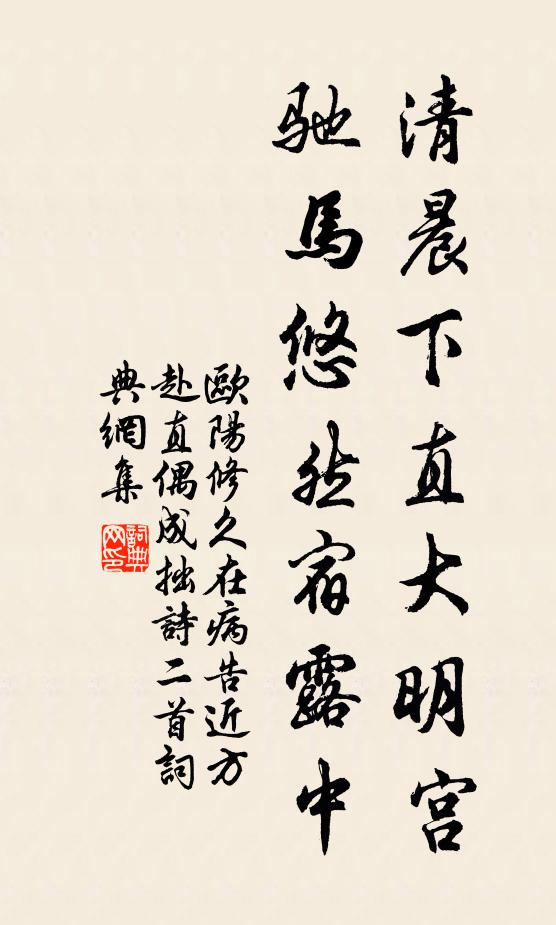 清晨下直大明宫
驰馬悠然宿露中
歐陽修久在病告近方
赴直偶成拙詩二首詞
典網集
詞典網印